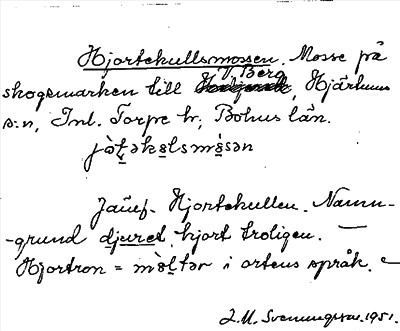 Hjortekullsmossen. Mosse på
skogsmarken till V. Berg, Hjärtums
s:n, Inl. Torpe hr, Bohus län.
Jämf. Hjortekullen. Namn-
-grund djuret hjort troligen. —
Hjortron = i ortens språk. —
Z.M. Svenungsson. 1951.